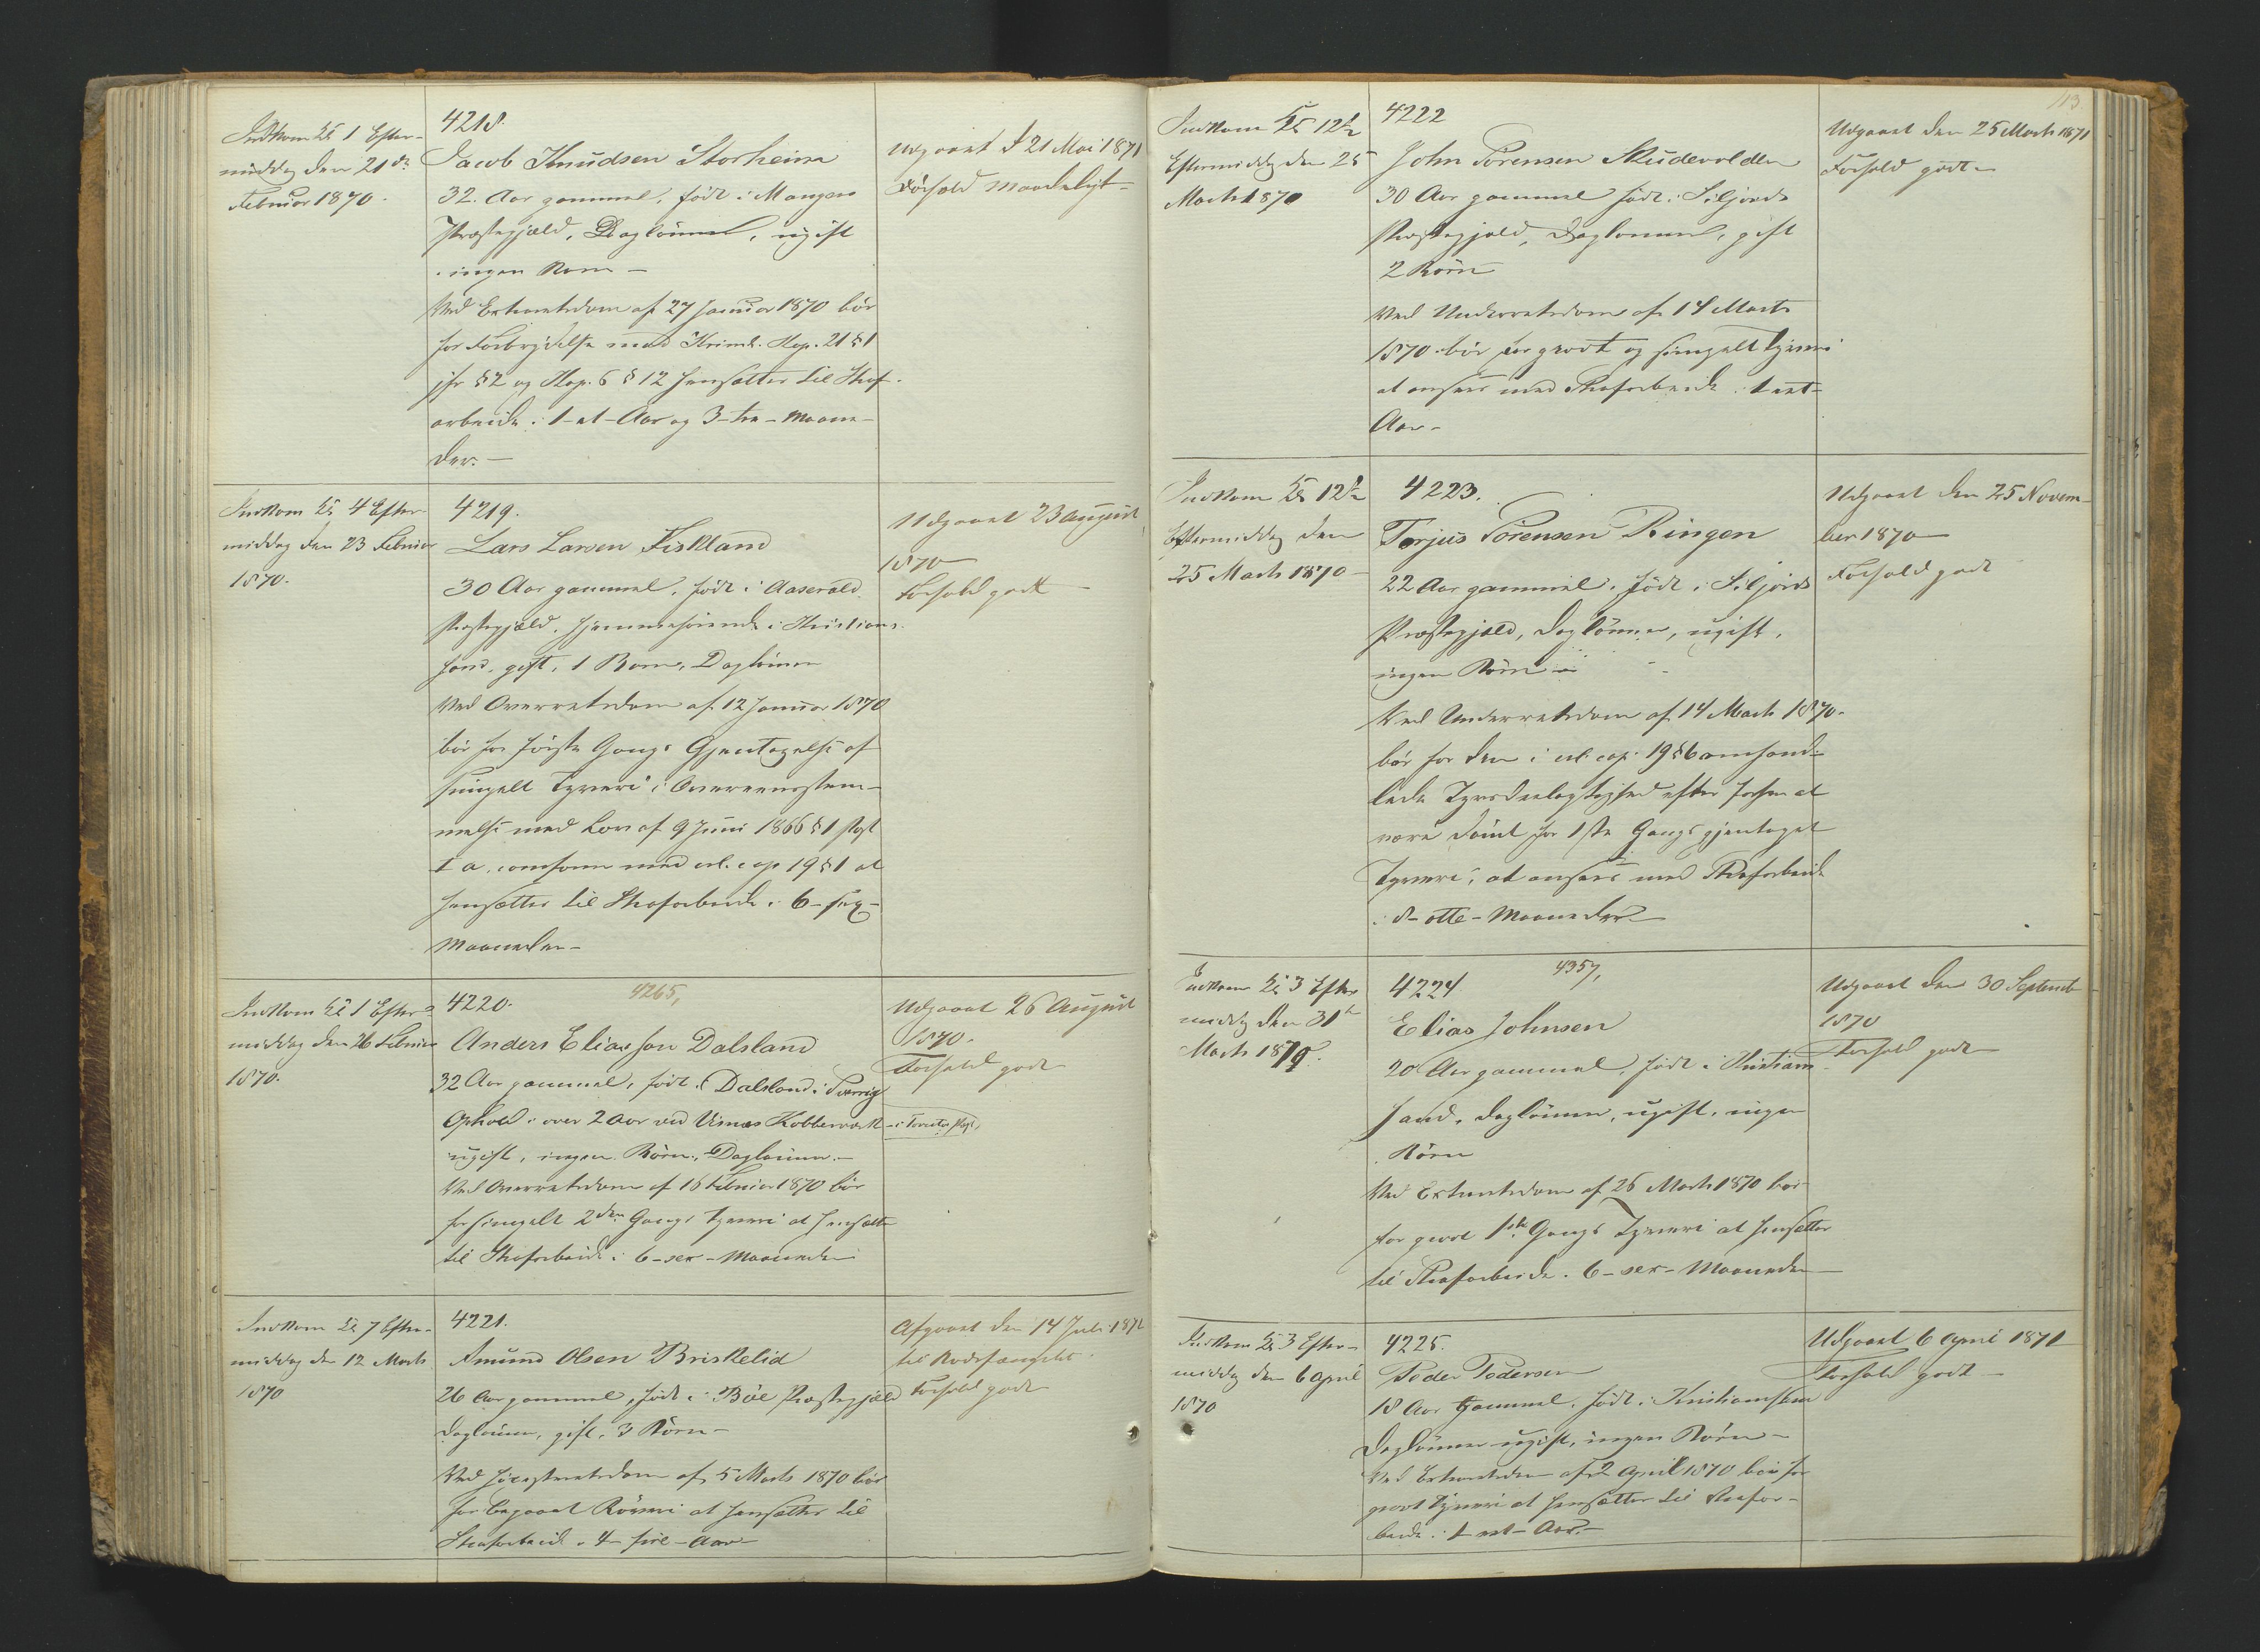 Indkom Kl 1 Efter-
middag den 21de
Februar 1870.
4218.
Jacob Knudsen Storheim
32. Aar gammel, født i Manger
Præstegjæld, Daglønner, ugift
ingen Børn —
Ved Extraretsdom af 27 Januar 1870 bør
for Forbrydelse mod Kriml. Kap. 21 § 1
jfr § 2 og Kap. 6 § 12 hensættes til Straf-
arbeide i 1 - et - Aar og 3 - tre - Maane-
der. —
Udgaaet d 21 Mai 1871
Forhold maadeligt —
Indkom Kl 4 Efter-
middag den 23 Februar
1870.
4219.
Lars Larsen Fiskland
30 Aar gammel, født i Aaserald
Præstegjæld, hjemmehørende i Kristians-
sand, gift, 1 Barn, Daglønner
Ved Overretsdom af 12 Januar 1870
bør for første Gangs Gjentagelse af
simpelt Tyveri i Overeensstem-
melse med Lov af 9 Juni 1866 § 1 Post
1 a. med crl. cap 19 § 1 at
hensættes til Strafarbeide i 6 - sex -
Maaneder —
Udgaaet 23 August
1870 —
Forhold godt —
Indkom Kl 1 Efter-
middag den 26 Februar
1870.
4220. 4265,
Anders Eliasson Dalsland
32 Aar gammel, født i Dalsland i Sverrig
Ophold i over 2 Aar ved Vimes Kobberværk
ugift, ingen Børn, Daglønner. —
Ved Overretsdom af 16 Februar 1870 bør
for simpelt 2den Gangs Tyveri at hensættes
til Strafarbeide i 6 - sex - Maaneder
Udgaaet 26 August
1870.
Forhold godt
Indkom Kl 7 Efter-
middag den 12 Marts
1870
4221.
Amund Olsen Briskelid
26 Aar gammel, født i Bøe Præstegjæld
Daglønner, gift, 3 Børn —
Ved Høiesteretsdom af 5 Marts 1870 bør
for begaaet Røveri at hensættes til
Strafarbeid i 4 - fire - Aar —
Afgaaet den 14 Juli 1872
til Bodsfængslet.
Forhold godt
113.
Indkom Kl 12½
Eftermiddag den 25
Marts 1870
4222
John Sørensen Skudevolden
30 Aar gammel født i Siljords
Præstegjæld, Daglønner, gift
2 Børn
Ved Underretsdom af 14 Marts
1870 bør for grovt og simpelt Tyveri
at ansees med Strafarbeide i 1 - et -
Aar —
Udgaaet den 25 Marts 1871
Forhold godt —
Indkom Kl 12½
Eftermiddag den
25 Marts 1870 —
4223.
Torjus Sørensen Ringen
22 Aar gammel, født i Siljords
Præstegjæld, Daglønner, ugift,
ingen Børn —
Ved Underretsdom af 14 Marts 1870.
bør for den i crl. cap. 19 § 6 omhand-
lede Tyvsdeelagtighed efter forhen at
være dømt for 1ste Gangs gjentaget
Tyveri, at ansees med Strafarbeide
i 8 - otte - Maaneder —
Udgaaet den 25 Novem-
ber 1870 —
Forhold godt
Indkom Kl 3 Efter
middag den 31te
Marts 1870.
4224 4357,
Elias Johnsen
20 Aar gammel, født i Kristian-
sand, Daglønner, ugift, ingen
Børn
Ved Extraretsdom af 26 Marts 1870 bør
for grovt 1ste Gangs Tyveri at hensættes
til Strafarbeide i 6 - sex - Maaneder —
Udgaaet den 30 Septemb
1870
Forhold godt
Indkom Kl 3 Efter-
middag den 6 April
1870
4225.
Peder Pedersen
18 Aar gammel, født i Kristianssand
Daglønner ugift, ingen Børn —
Ved Extraretsdom af 2 April 1870 bør for
grovt Tyveri at hensættes til Strafar-
beide i 1 - et - Aar. —
Udgaaet 6 April 1871
Forhold godt —